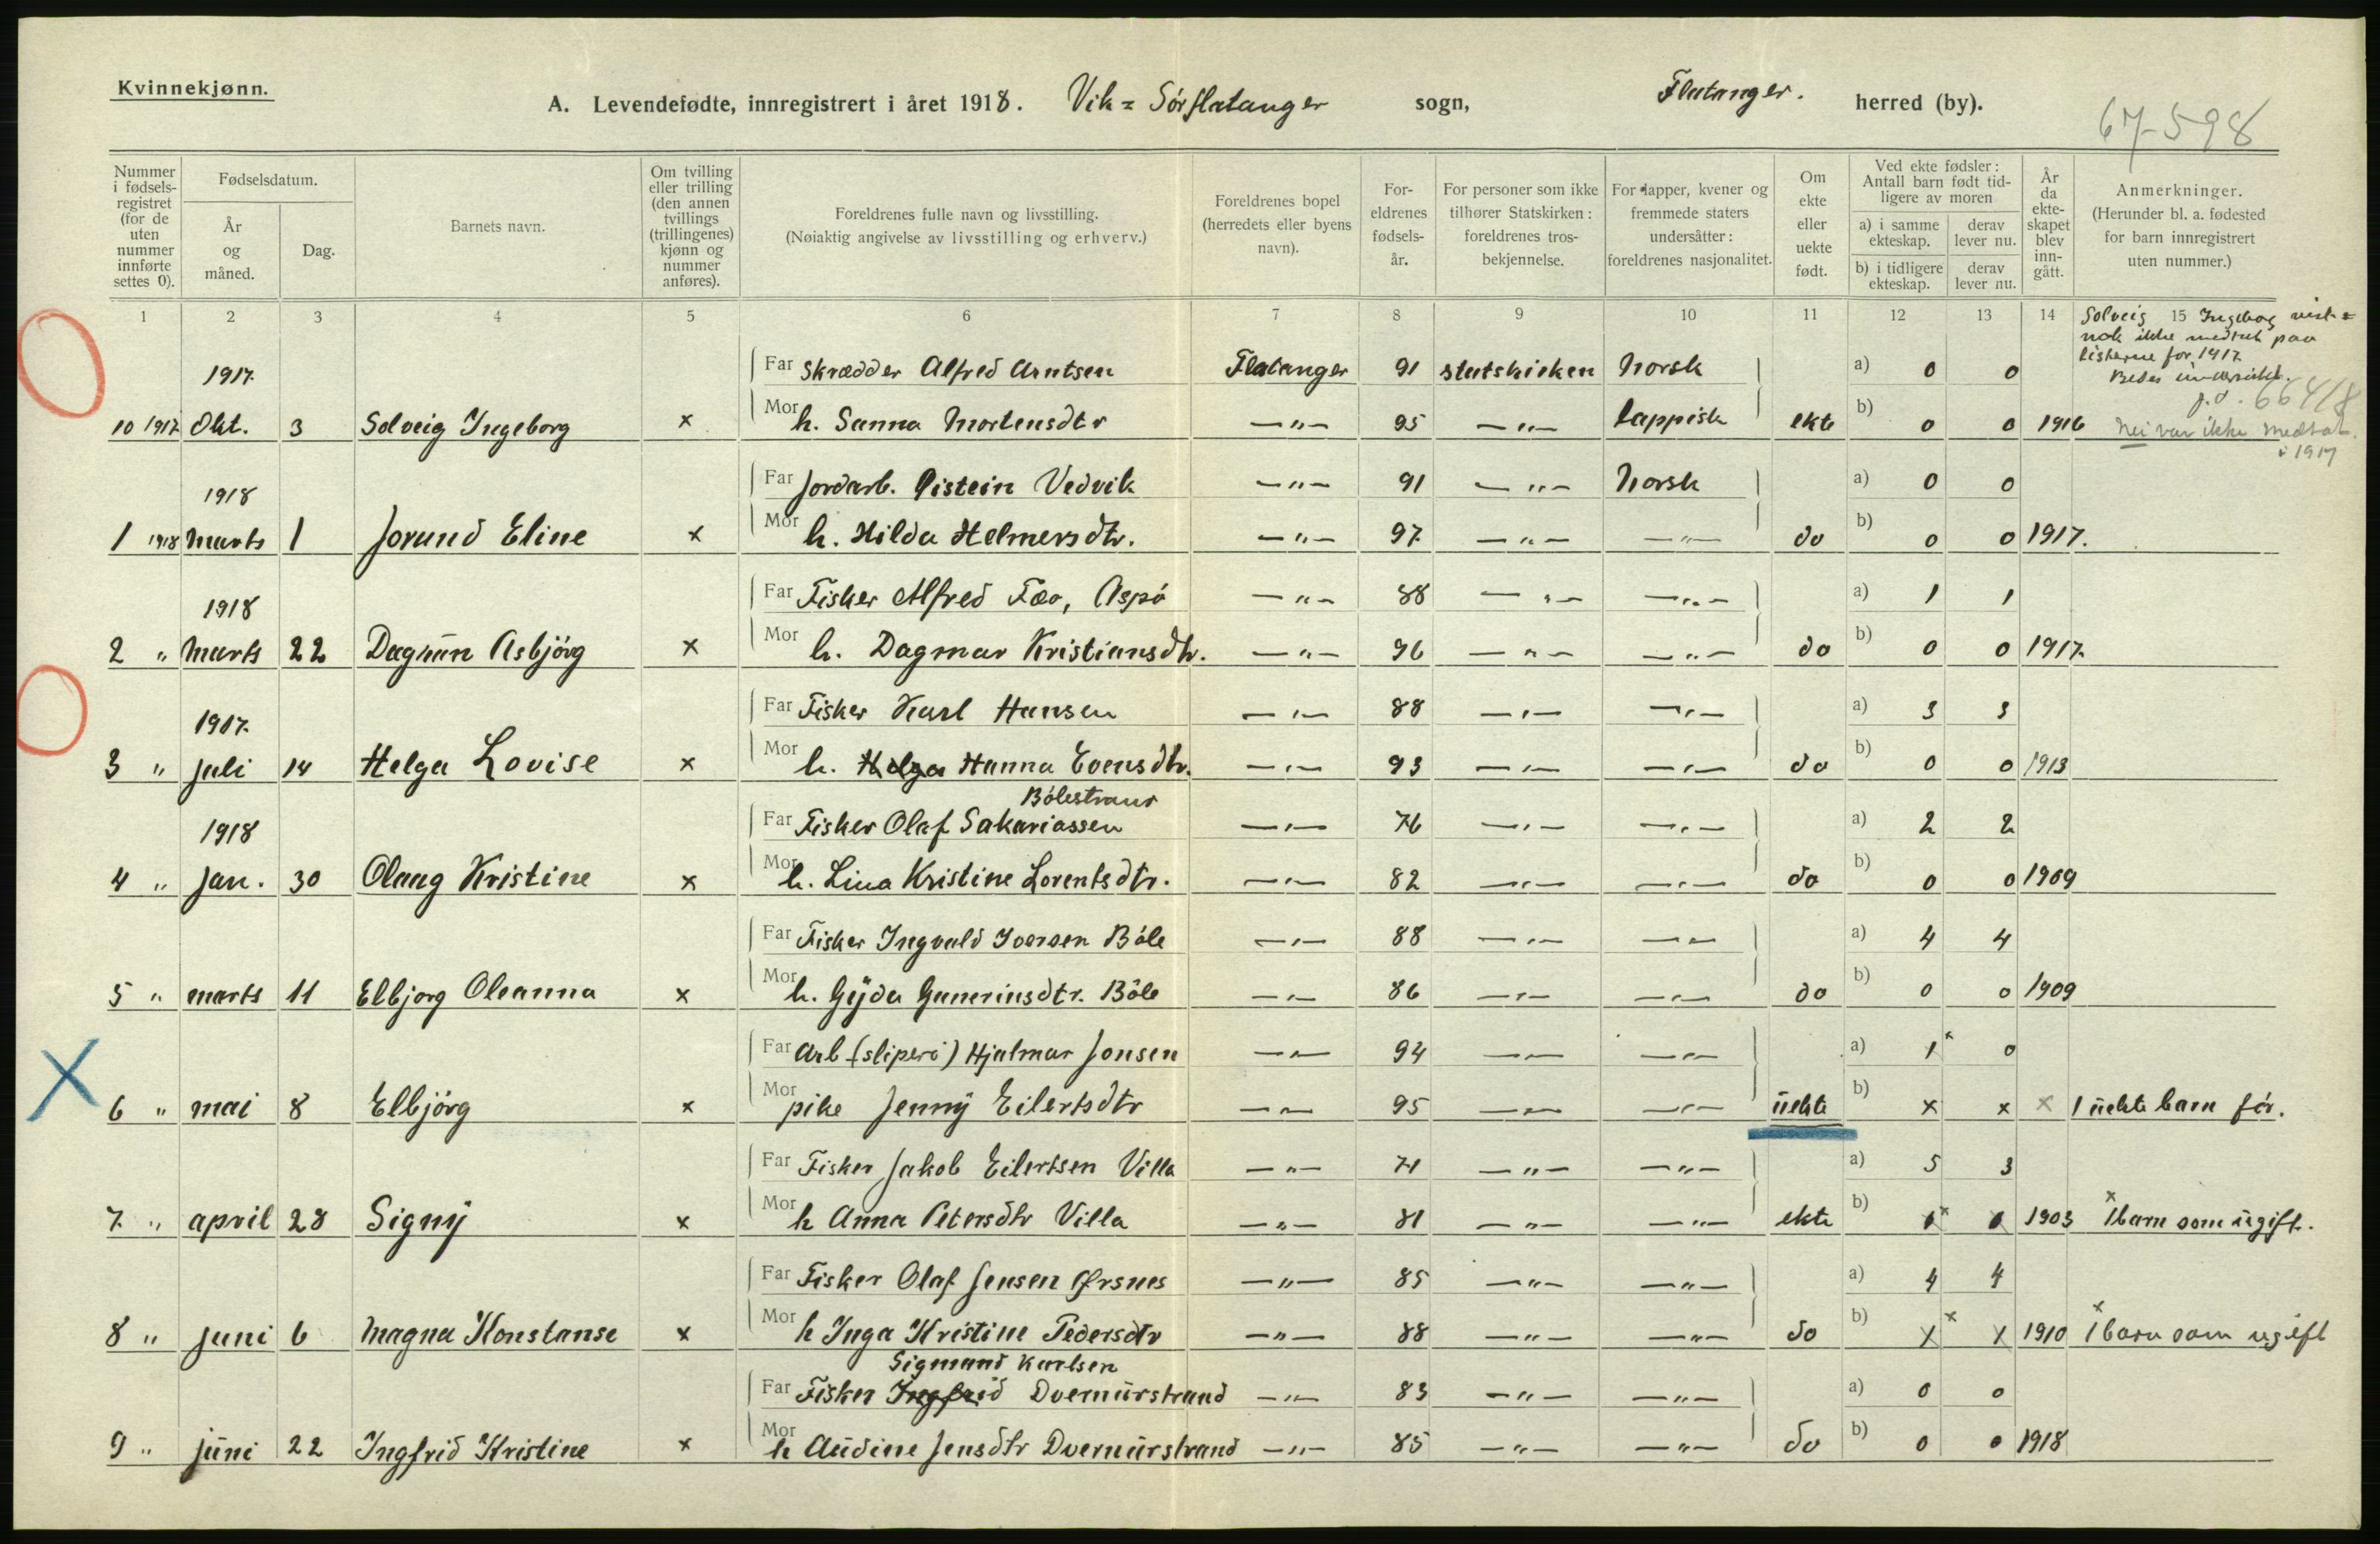 Kvinnekjønn.
A. Levendefødte, innregistrert i året 1918. Vik = Sörflatanger sogn, Flatanger. herred (by).
67-598
Nummer i fødsels-registret (for de uten nummer innførte settes 0).
Fødselsdatum.
År og måned.
Dag.
Barnets navn.
Om tvilling eller trilling (den annen tvillings (trillingenes) kjønn og nummer anføres).
Foreldrenes fulle navn og livsstilling. (Nøiaktig angivelse av livsstilling og erhverv.)
Foreldrenes bopel (herredets eller byens navn).
For-eldrenes fødsels-år.
For personer som ikke tilhører Statskirken: foreldrenes tros-bekjennelse.
For lapper, kvener og fremmede staters undersåtter: foreldrenes nasjonalitet.
Om ekte eller uekte født.
Ved ekte fødsler: Antall barn født tid-ligere av moren
a) i samme ekteskap.
derav lever nu.
b) i tidligere ekteskap.
derav lever nu.
År da ekte-skapet blev inn-gått.
Anmerkninger. (Herunder bl. a. fødested for barn innregistrert uten nummer.)
1 2 3 4 5 6 7 8 9 10 11 12 13 14 15
Solveig Ingeborg vist=
nok ikke medtat paa
listerne for 1917.
Bedes undersøkt.
J.d. 664/18
Nei var ikke medtat
i 1917
1917. Far Skrædder Alfred Arntsen Flatanger 91 statskirken Norsk a) 0 0
10 1917 Okt. 3 Solveig Ingeborg x Mor h. Sanna Mortensdtr —"— 95 —"— lappisk ekte b) 0 0 1916
1918 Far Jordarb. Oistein Vedvik —"— 91 —"— Norsk a) 0 0
1 1918 Marts 1 Jorund Eline x Mor h. Hilda Helmersdtr. —"— 97 —"— —"— do b) 0 0 1917.
1918 Far Fisker Alfred Fæo, Aspö —"— 88 —"— —"— a) 1 1
2 " Marts 22 Dagrun Asbjörg x Mor h. Dagmar Kristiansdtr. —"— 96 —"— —"— do b) 0 0 1917.
1917. Far Fisker Karl Hansen —"— 88 —"— —"— a) 3 3
3 " juli 14 Helga Lovise x Mor h. Helga Hanna Evensdtr. —"— 93 —"— —"— do b) 0 0 1913
Bölestrand
1918 Far Fisker Olaf Sakariassen —"— 76 —"— —"— a) 2 2
4 " Jan. 30 Olaug Kristine x Mor h. Lina Kristine Lorentsdtr. —"— 82 —"— —"— do b) 0 0 1909
Far Fisker Ingvald Iversen Böle —"— 88 —"— —"— a) 4 4
5 " marts 11 Elbjorg Oleanna x Mor h. Gyda Guneriusdtr. Böle —"— 86 —"— —"— do b) 0 0 1909
Far Arb (sliperi) Hjalmar Jonsen —"— 94 —"— —"— a) 1 x 0
6 " mai 8 Elbjörg x Mor pike Jenny Eilertsdtr —"— 95 —"— —"— uekte b) x x x 1 uekte barn för.
Far Fisker Jakob Eilertsen Villa —"— 71 —"— —"— a) 5 3
7. " april 28 Signy x Mor h Anna Petersdtr Villa —"— 81 —"— —"— ekte b) x 1903 x 1 barn som ugift.
Far Fisker Olaf Jensen Ørsnes —"— 85 —"— —"— a) 4 4
8 " juni 6 Magna Konstanse x Mor h Inga Kristine Pedersdtr —"— 88 —"— —"— do b) x x x 1910 x 1 barn som ugift
Sigmund Karlsen
Far Fisker Ingfrid Dvernurstrand —"— 83 —"— —"— a) 0 0
9 " juni 22 Ingfrid Kristine x Mor h Audine Jensdtr Dvernurstrand —"— 85 —"— —"— do b) 0 0 1918